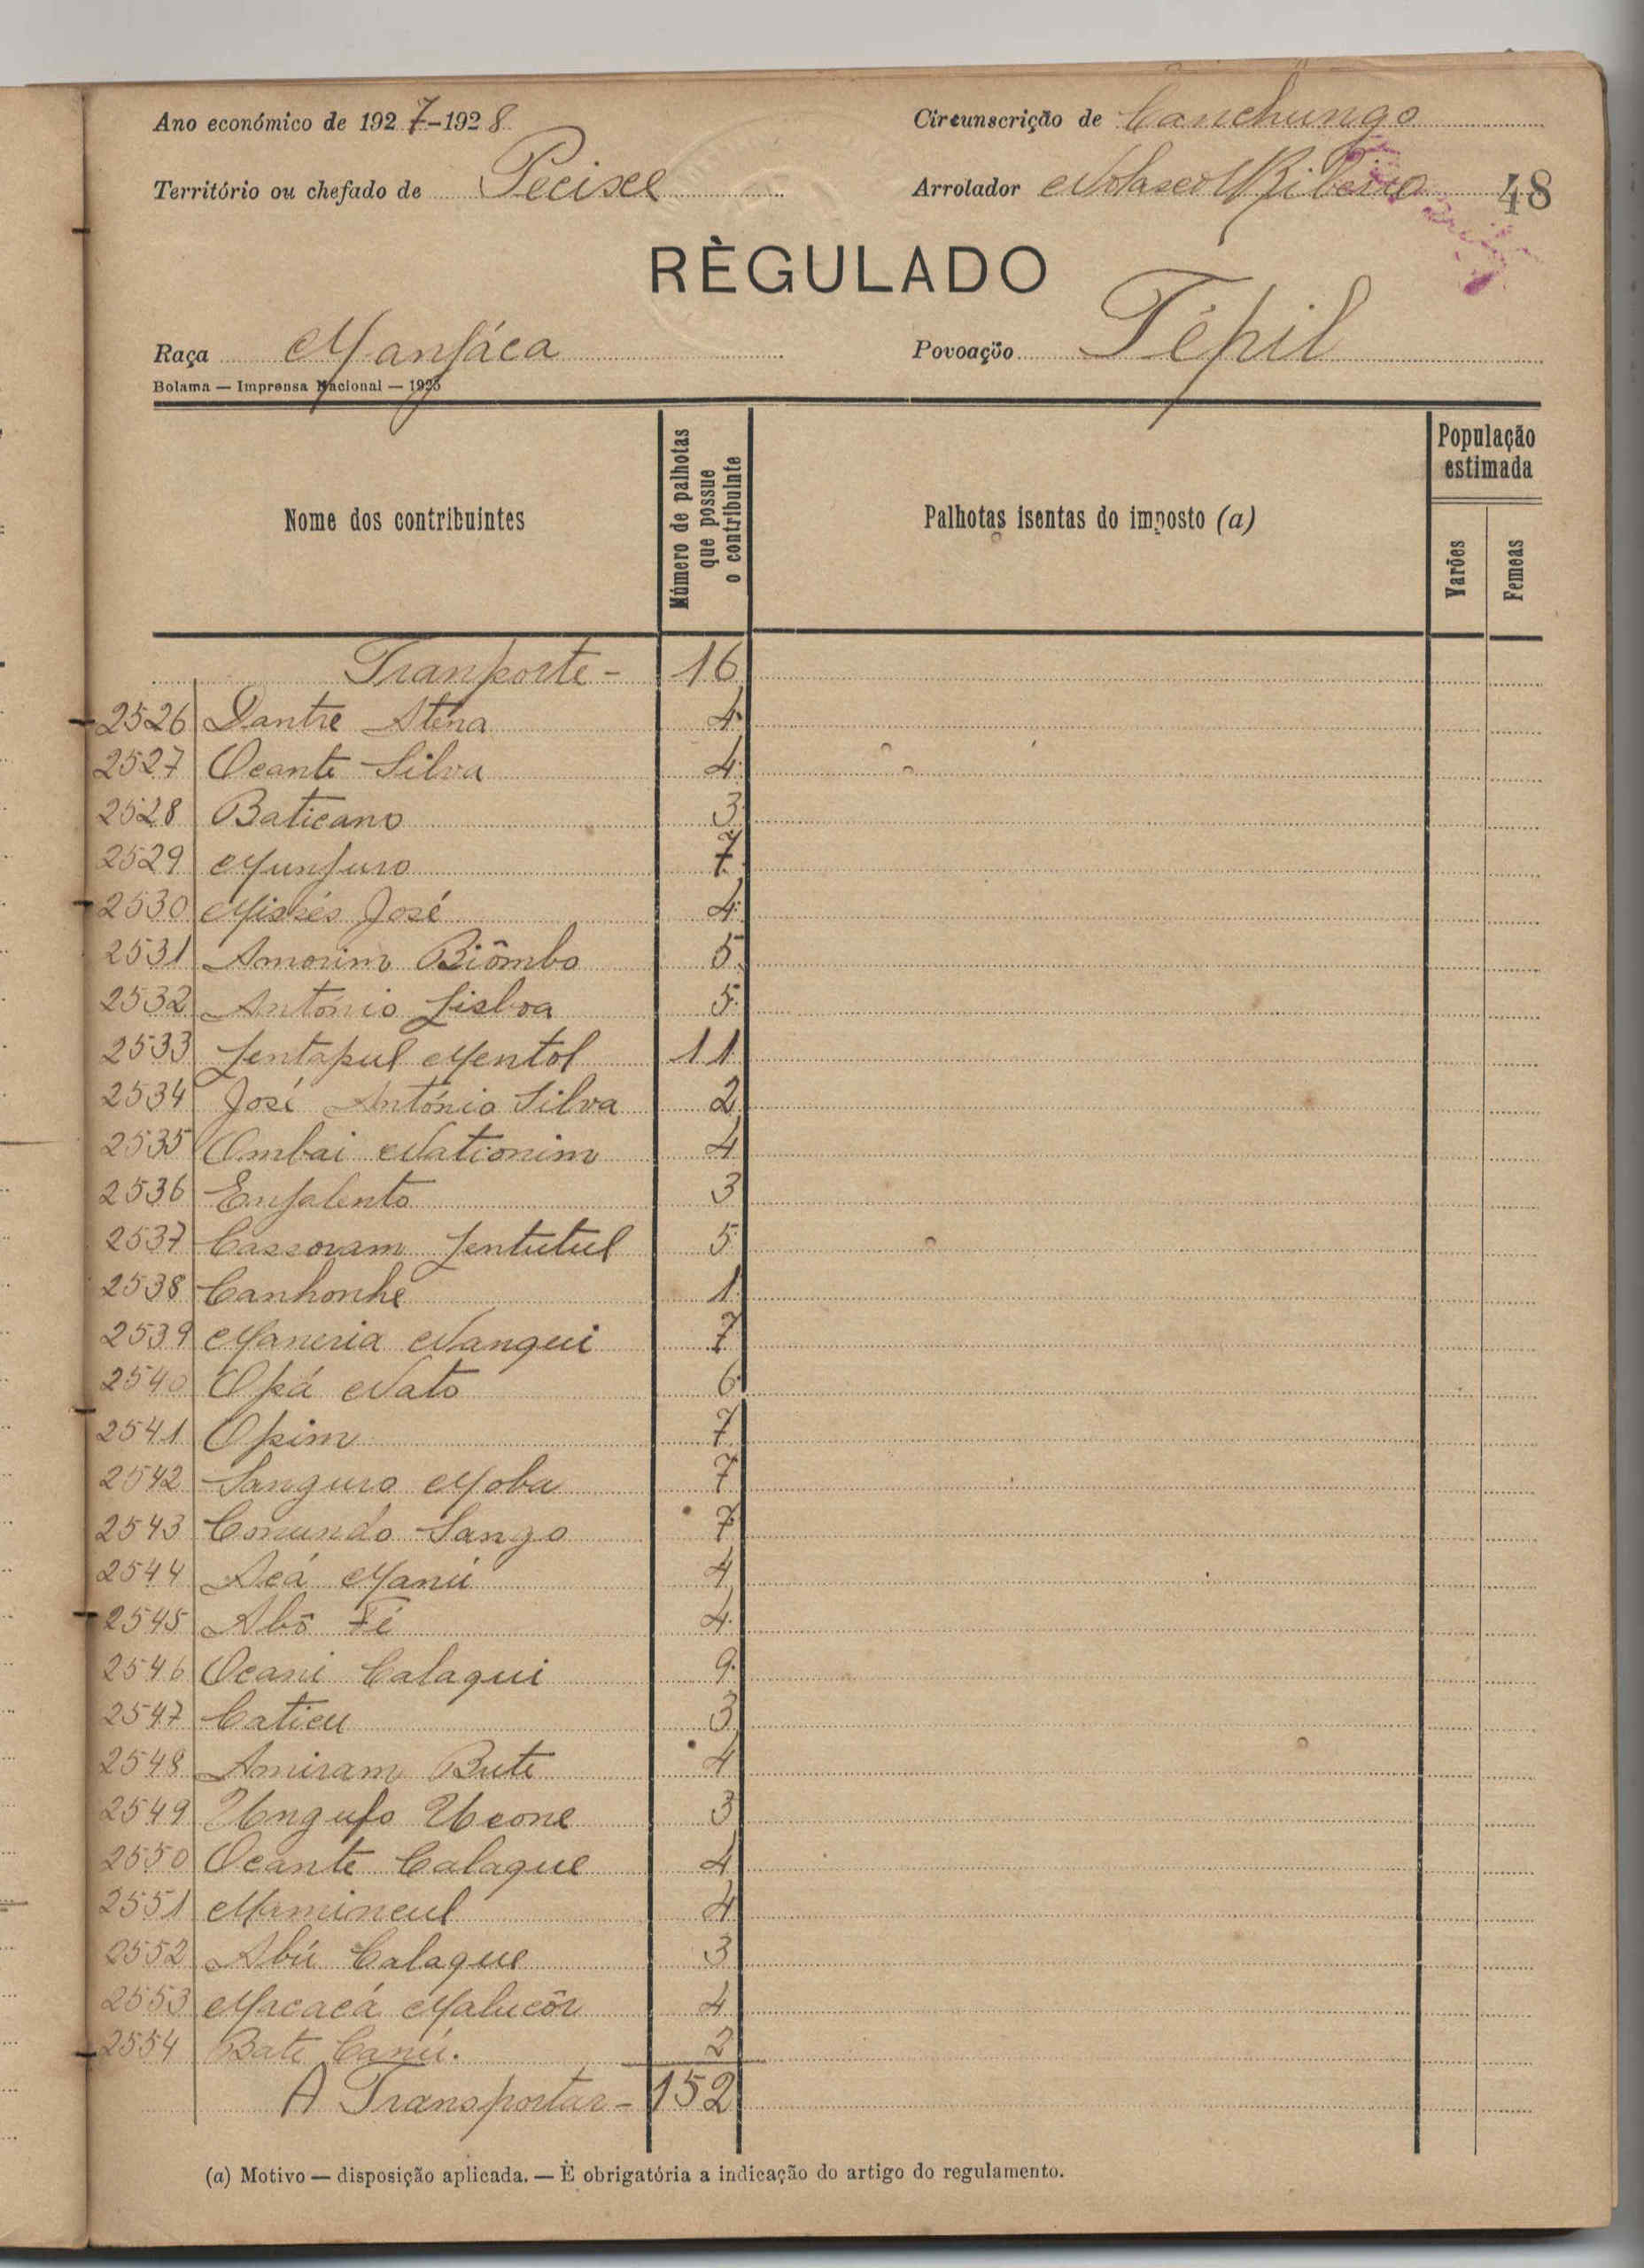 Ano económico de 1927-1928
Circunscrição de Canchungo
Território ou chefado de Pecixe
Arrolador Nolasco Ribeiro
48
RÈGULADO
Raça Manjáca
Povoação Tépil
Bolama — Imprensa Nacional — 1925
Nome dos contribuintes
Número de palhotas que possue o contribuinte
Palhotas isentas do imposto (a)
População estimada
Varões
Femeas
Tranporte - 16
2526 Dantre Aténa 4
2527 Ocante Silva 4
2528 Baticano 3
2529 Munjuro 7
2530 José 4
2531 Amorim Biômbo 5
2532 António Lisboa 5
2533 Jentapul Mentol 11
2534 José António Silva 2
2535 Ombai Nationim 4
2536 Enjalento 3
2537 Cassoram Jentutul 5
2538 Canhonhe 1
2539 Maneria Nanqui 7
2540 Opá Nato 6
2541 Opim 7
2542 Sanguro Moba 7
2543 Comundo Sango 7
2544 Acá Manú 4
2545 Abô Fé 4
2546 Ocani Calaqui 9
2547 Caticu 3
2548 Amiram Bute 4
2549 Ungufo Ucone 3
2550 Ocante Calaque 4
2551 4
2552 Abú Calaque 3
2553 Macacá Malucôr 4
2554 Bati Canú. 2
A Transportar - 152
(a) Motivo — disposição aplicada. — È obrigatória a indicação do artigo do regulamento.